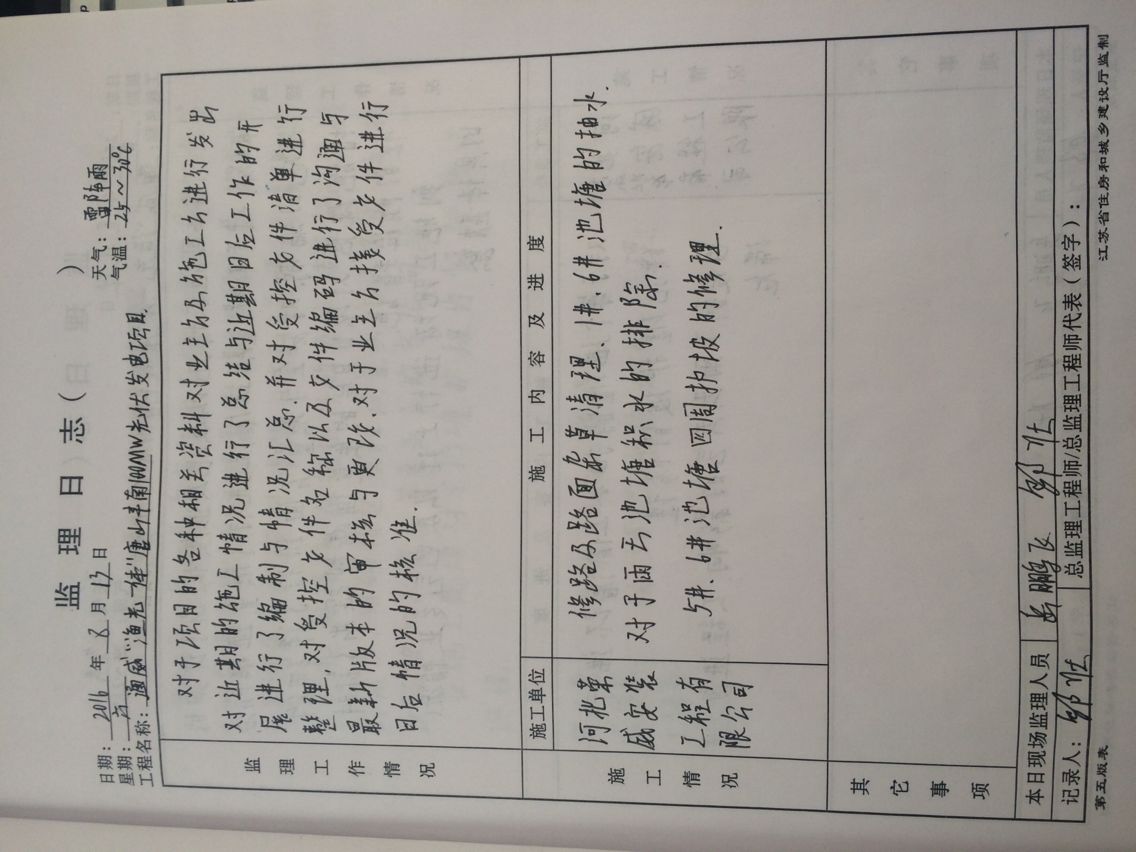 监 理 日 志（日 ）
日期：2016 年 8 月 13 日
天气：雷阵雨
星期：六
气温：25～30℃
工程名称：通威"渔光一体"唐山丰南100MW光伏发电项目
监理工作情况
对于项目的各种相关资料对业主方及施工方进行发出
对近期的施工情况进行了总结与近期日后工作的开
展进行了编制与情况汇总.并对受控文件清单进行
整理,对受控文件名称以及文件编码进行了沟通与
最新版本的审核与更改.对于业主方接受文件进行
日后情况的核准.
施工情况
施工单位
施 工 内 容 及 进 度
河北荣
威安装
工程有
限公司
修路及路面杂草清理、1#、6#池塘的抽水.
对于雨天池塘积水的排除.
5#、6#池塘四周护坡的修理.
其它事项
本日现场监理人员
鹏飞 邹
记录人：邹
总监理工程师/总监理工程师代表（签字）：
第五版表
江苏省住房和城乡建设厅监制